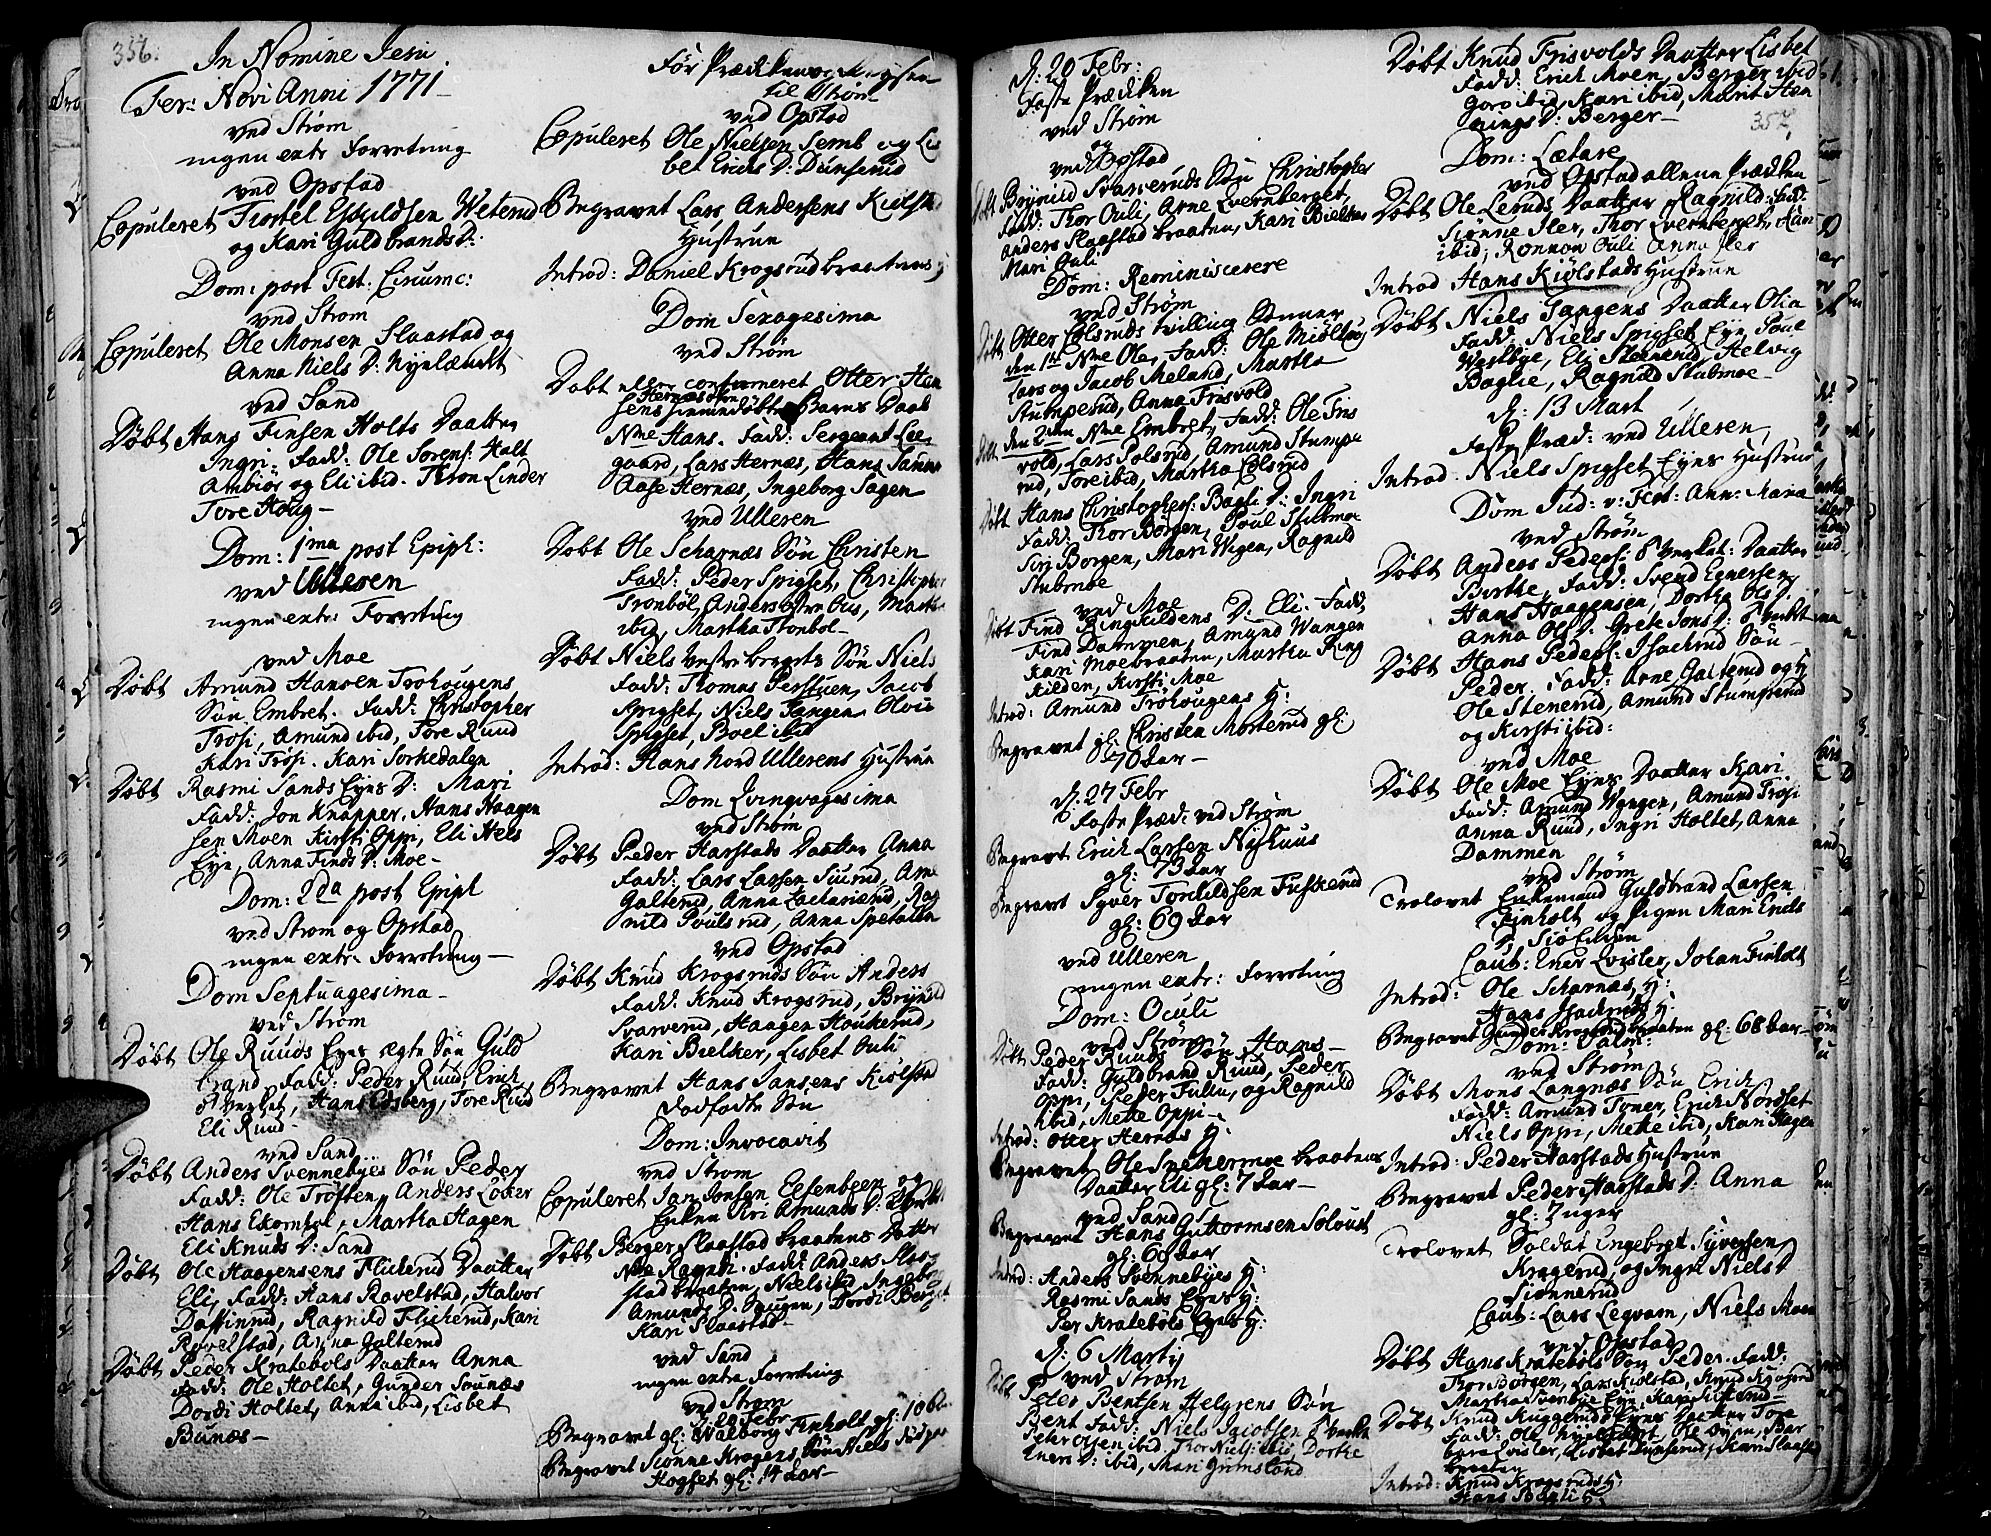 356.
In Nomine Jesu
Fer: Novi Anni 1771
ved Strøm
ingen extr. Forretning
ved Opstad
Copuleret Torkel Eskildsen Weterud
og Kari Guldbrands D:
Dom: post Fest. Circumc:
ved Strøm
Copuleret Ole Monsen Slaastad og
Anna Niels D:
ved Sand
Døbt Hans Finsen Holts Daatter
Ingri. Fadd: Ole Sørens: Holt
Anbiør og Eli ibid. Thron Linder
Tore Houg
Dom: 1ma post Epiph:
ved Ulleren
ingen extr. Forretning
ved Moe
Døbt Amund Hansen Trøhougens
Søn Embret. Fadd: Christopher
Trøsi, Amund ibid, Tore Ruud
Kari Trøsi. Kari Sorkedalen
Døbt Rasmi Sands Eyes D: Mari
Fadd: Jon Knapper, Hans Haagen
sen Moen Kirsti Oppi, Eli Hels
Eye, Anna Finds D: Moe
Dom: 2da post Epiph
ved Strøm og Opstad
ingen extr. Forretning
Dom Septuagesima
ved Strøm
Døbt Ole Ruuds Eyes ægte Søn Guld
brand Fadd: Peder Ruud, Erich
Verket, Hans Edsberg, Tore Ruud
Eli Ruud
ved Sand
Døbt Anders Svennebyes Søn Peder
Fadd: Ole Trøften, Anders
Hans Ekornhol, Martha Hagen
Eli Knuds D: Sand
Døbt Ole Haagensens Flikerud Daatter
Eli, Fadd: Hans Ravelstad, Halvor
Daffinrud, Ragnild Flickerud, Kari
Ravelstad, Anna Galterud
Døbt Peder Kratebøls Daatter Anna
Fadd: Ole Holtet, Gunder Sounæs
Dordi Holtet, Anna ibid, Lisbet
Bunæs
Før Prædikken
til Strøm
ved Opstad
Copuleret Ole Nielsen Semb og Lis
bet Erichs D: Dunserud
Begravet Lars Andersens Kiølstad
Hustrue
Introd: Daniel Krogsrud braatens H
Dom Sexagesima
ved Strøm
Døbt eller confirmeret Otter Han
sens Hernæs hiemmedøbte Barns Daab
Nne Hans. Fadd: Sergeant Lee
gaard, Lars Hernæs, Hans
Aase Hernæs, Ingeborg Sagen
ved Ulleren
Døbt Ole Scharnæs Søn Christen
Fadd: Peder Spigset, Christopher
Tronbøl, Anders østre Ous, Martha
ibid, Martha Tronbøl
Døbt Niels Søn Niels
Fadd: Thomas Perstuen, Jacob
Spigset, Niels Tangen Olvia
Spigset, Boel ibid
Introd: Hans Nord Ullerens Hustrue
Dom Qvinqvagesima
ved Strøm
Døbt Peder Harstads Daatter Anna
Fadd: Lars Larsen Siurud, Arne
Galterud, Anna Zachariærud, Rag
nild Poulsrud, Anna Spetalen
ved Opstad
Døbt Knud Krogsruds Søn Anders
Fadd: Knud Krogsrud, Brynild
Svarverud, Haagen Houkerud,
Kari Bielker, Lisbet Ouli
Begravet Hans Jansens Kiølstad
dødfødte Søn
Dom: Invocavit
ved Strøm
Copuleret Jan Jonsen Eesenbeen og
Enken Siri Amunds D:
Døbt Berger Slaastad braatens Datter
Nne Ragndi. Fadd: Anders Slaa
stad braaten, Niels ibid Ingeborg
Amunds D. Haugen, Dordi Berger
Kari Slaastad
ved Sand
ingen extra Forretning
ved Strøm
d: 20 Febr
Begravet gl: Walborg Finholt gl: 106
Begravet Siønne Krogers Søn Niels
Hogset gl: 14 Aar
d: 20 Febr:
Faste Prædiken
ved Strøm
og
ved Opstad
Døbt Brynild Svarveruds Søn Christopher
Fadd: Thor Ouli, Arne Qvernberget,
Anders Slaastad braaten, Kari Bielker
Mari Ouli
Dom: Reminiscere
ved Strøm
Døbt Otter Colsruds tvilling Sønner
den 1te Nne Ole, Fadd: Ole
Lars og Jacob Meland, Martha
Stumperud, Anna Frisvold
Døbt den 2den Nne Embret, Fadd: Ole Fris
vold, Lars Polsrud, Amund Stumpe
rud, Tore ibid, Martha Colsrud
Døbt Hans Christophers: Bagli D: Ingri
Fadd: Thor Borgen, Poul Stubmoe
Siri Borgen, Mari Wigen, Ragnild
Stubmoe
ved Moe
Døbt Find Ringkildens D: Eli. Fadd:
Find Dammen, Amund Wangen
Kari Moebraaten, Martha Ring
kilden, Kirsti Moe
Introd: Amund Trøhougens H:
Begravet gl: Christen Morterud gl:
70 Aar
d: 27 Febr
Faste Præd: ved Strøm
Begravt Erich Larsen Nyhuus
gl: 73 Aar
Begravt Syver Torkildsen Fuskerud
gl: 69 Aar
ved Ulleren
ingen extr: Forretning
Dom: Oculi
ved Strøm
Døbt Peder Ruuds Søn Hans
Fadd: Guldbrand Ruud, Peder
Oppi, Peder Fulu, og Ragnild
ibid, Mette Oppi
Introd: Otter Hernæs H:
Begravet Ole Snekermoe braatens
Daatter Eli gl: 7 Aar
ved Sand
Begravet Hans Guttormsen Soloust
gl: 60 Aar
Introd: Anders Svennebyes H:
Rasmi Sands Eyes H:
Per Kratebøls Eyes H:
d: 6 Martij
ved Strøm
Døbt Peter Bentsen Helgrens Søn
Bent Fadd: Niels Jacobsen
Peter Olsen ibid, Thor Niels: ibid, Dorthe
Eners D: ibid, Mari Grimsland
357.
Døbt Knud Frisvolds Daatter Lisbet
Fadd: Erich Moen, Berger ibid
Goro ibid, Kari ibid, Marit Hen
nings D: Berger
Dom: Lætare
ved Opstad allene Prædiken
Døbt Ole Leruds Daatter Ragnild. Fadd:
Siønne Iler, Thor Qvernberget,
ibid, Ronnou Ouli Anna Iler
Introd Hans Kiølstads Hustrue
Døbt Niels Tangens Daatter Olia
Fadd: Niels Spigset Eye, Poul
Westbye, Eli Stenerud, Helvig
Baglie, Ragnild Stubmoe
d: 13 Mart
Faste Præd: ved Ulleren,
Introd. Niels Spigset Eyes Hustrue
Dom Jud: v: Fest: Ann: Mariæ
ved Strøm
Døbt Anders Peders: Verket: Daatter
Birthe, Fadd: Svend Enersen,
Hans Haagensen, Dorthe Ols D:
Anna Ols D: Grete Jons D:
Døbt Hans Peders: Isachrud Søn
Peder, Fadd: Arne Galterud og H
Ole Stenerud, Amund Stumperud
og Kirsti ibid:
ved Moe
Døbt Ole Moe Eyes Daatter Kari
Fadd: Amund Wangen, Amund Trøsi
Anna Ruud, Ingri Holtet, Anna
Dammen
ved Strøm
Trolovet Enkemand Guldbrand Larsen
Finholt og Pigen Mari Erichs
D:
Caut: Ener Qvisler, Johan Finholt
Introd: Ole Scharnæs H:
Hans Isachruds H:
Begravet Gunder Krogsrud braaten gl: 68 Aar
Dom: Palm:
ved Strøm
Døbt Mons Langnæs Søn Erich
Fadd: Amund Tyner, Erich Nordset
Niels Oppi, Mette ibid, Kari Hagen
Introd: Peder Harstads Hustrue
Begravet Peder Harstads D: Anna
gl: 7 uger
Trolovet Soldat Engebret Syversen
Kragerud, og Ingri Niels D
Siønnerud
Caut: Lars Legvam, Niels Moen
ved Opstad
Døbt Hans Kratebøls Søn Peder. Fadd:
Thor Borgen, Lars Kiølstad, Knud Krogsrud
Martha Svenbye Eye, Kari
Døbt Knud Kuggeruds Eyes Daatter Tore
Fadd: Ole
bara Qvisler, Lisbet Dunserud, Kari Slaastad
braaten
Introd: Knud Krogsruds H:
Hans Bagli H: